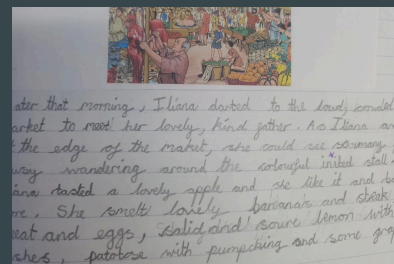 ater that morning, Iliana darted to the loud, crowded
arket to meet her lovely, kind father. As Iliana ar
the edge of the market, she could see so many
wandering around the colourful stall
ana tasted a lovely apple and she like it and b
re. She smelt lovely bananas and steak
eat and eggs, salid and soure lemon with
shes, patotose with pumpching and some gra